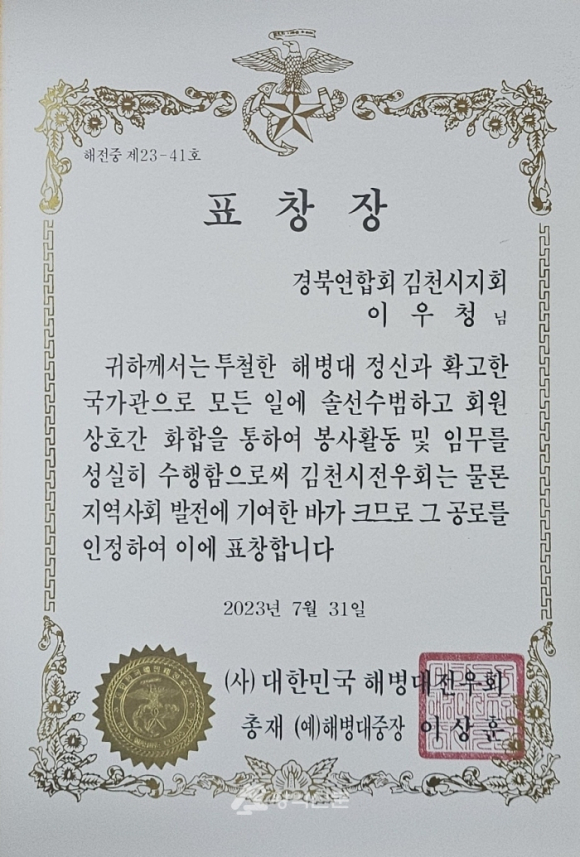 해전중 제23-41호
표 창 장
경북연합회 김천시지회
이 우 청 님
귀하께서는 투철한 해병대 정신과 확고한
국가관으로 모든 일에 솔선수범하고 회원
상호간 화합을 통하여 봉사활동 및 임무를
성실히 수행함으로써 김천시전우회는 물론
지역사회 발전에 기여한 바가 크므로 그 공로를
인정하여 이에 표창합니다
2023년 7월 31일
(사) 대한민국 해병대전우회
총재 (예)해병대중장 이상훈